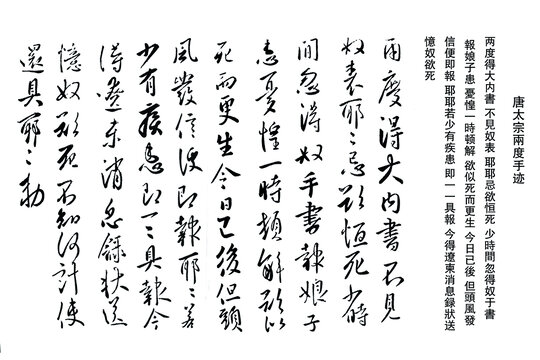 唐太宗兩度手迹
两度得大内書 不見奴表 耶耶忌欲恒死 少時間忽得奴于書
報娘子患 憂惶一時頓解 欲似死而更生 今日已後 但頭風發
信便即報 耶耶若少有疾患 即一一具報 今得遼東消息録狀送
憶奴欲死
兩度得大内書不見
奴表耶〻忌欲恒死少時
間忽得奴手書報娘子
患憂惶一時頓解欲似
死而更生今日已後但頭
風發信便即報耶〻若
少有疾患即一〻具報今
得遼東消息録狀送
憶奴欲死不知何計使
還具耶〻勅